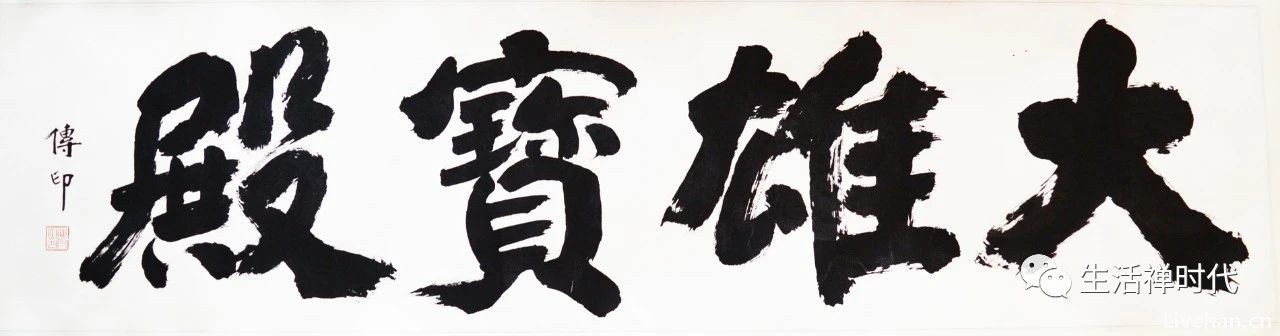 大雄寳殿
傳印
生活禅时代
Livchan.cn